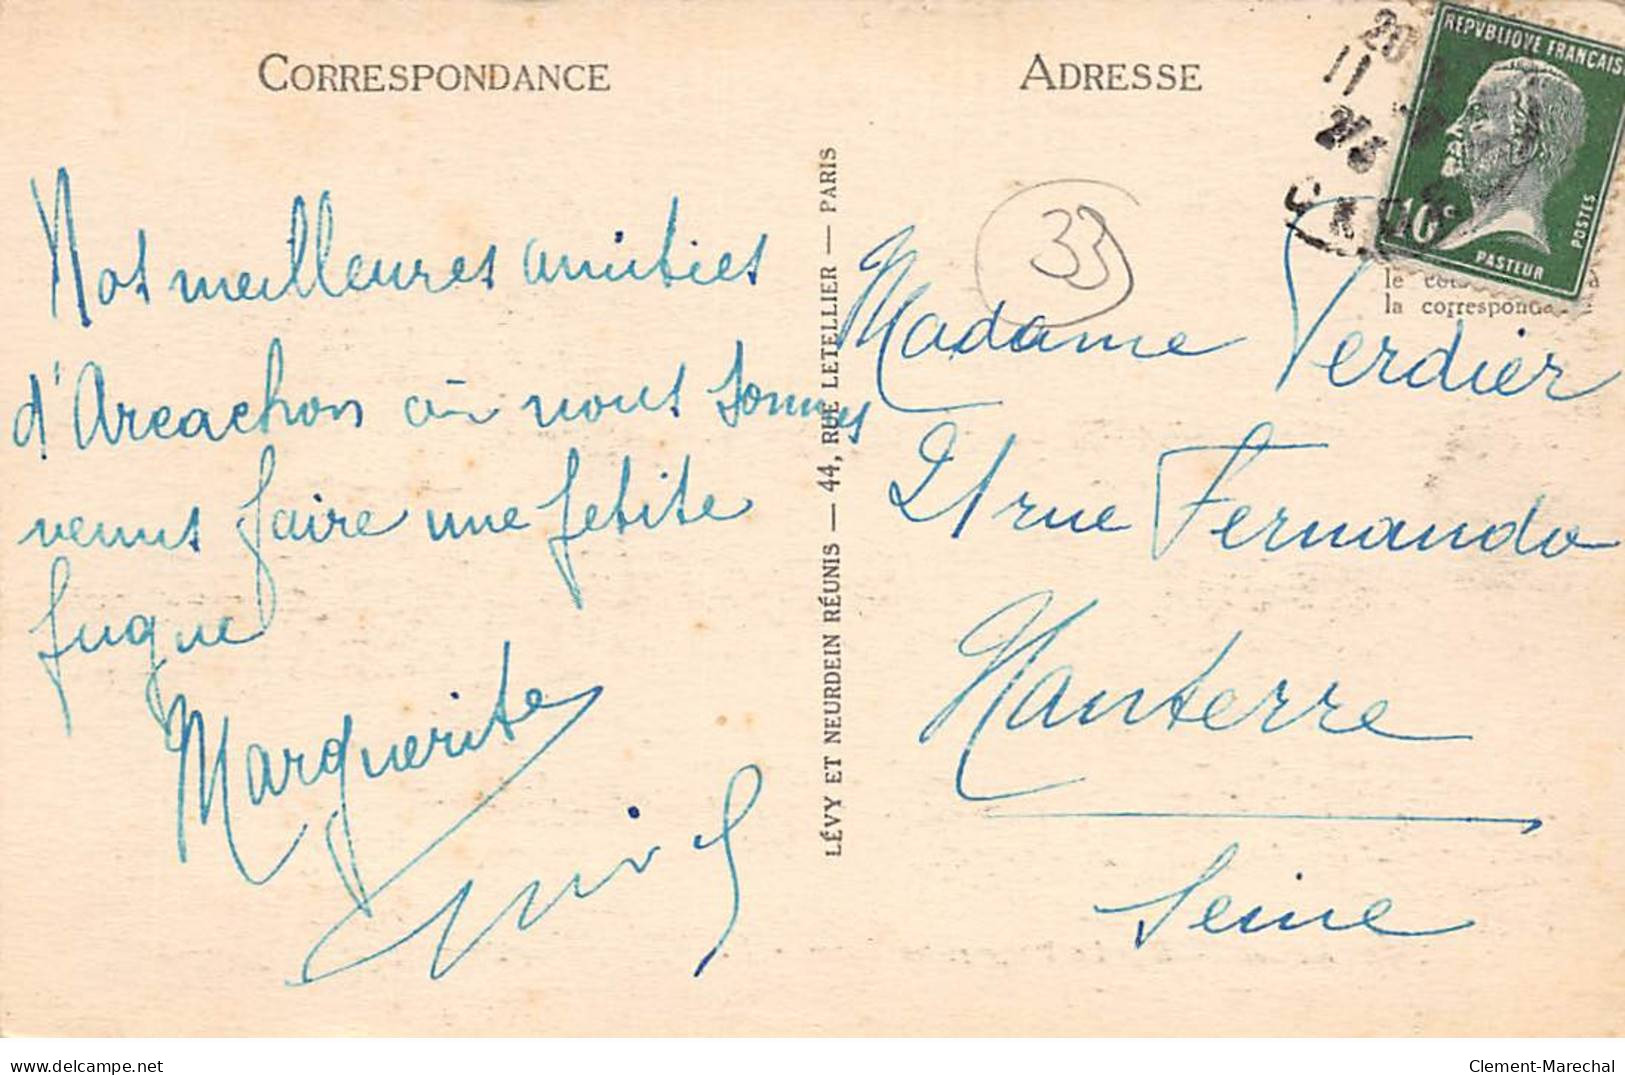 CORRESPONDANCE
Nos meilleures amitiés
d'Arcachon où nous sommes
venus faire une petite
fugue
Marguerite
LÉVY ET NEURDEIN RÉUNIS — 44, RUE LETELLIER — PARIS
ADRESSE
REPVBLIQVE FRANÇAISE
10c
POSTES
PASTEUR
20
11
33
le
la correspondance
Madame Verdier
21 rue Fernando
Nanterre
Seine
delcampe.net
Clement-Marechal